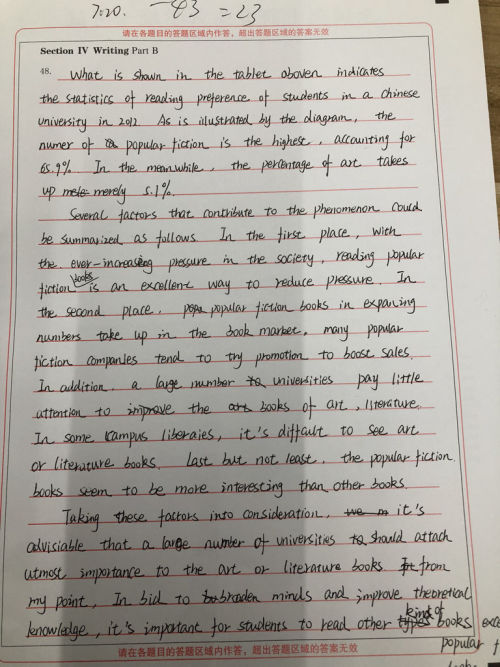 7:20. 83 = 23
请在各题目的答题区域内作答，超出答题区域的答案无效
Section IV Writing Part B
48. What is shown in the tablet aboven indicates
the statistics of reading preference of students in a chinese
university in 2012. As is illustrated by the diagram, the
numer of popular fiction is the highest, accounting for
65.9%. In the meanwhile, the percentage of art takes
up merely 5.1%.
Several factors that contribute to the phenomenon could
be summarized as follows. In the first place, with
the ever-increasing pressure in the society, reading popular
fiction books is an excellent way to reduce pressure. In
the second place, popular fiction books in expaning
numbers take up in the book market, many popular
fiction companies tend to try promotion to boost sales.
In addition, a large number universities pay little
attention to improve the books of art, literature.
In some campus liberaies, it's difficult to see art
or literature books. Last but not least, the popular fiction
books seem to be more interesting than other books.
Taking these factors into consideration, it's
advisiable that a large number of universities should attach
utmost importance to the art or literature books from
my point, In bid to braden minds and improve theoretical
knowledge, it's important for students to read other kind of books
popular
请在各题目的答题区域内作答，超出答题区域的答案无效